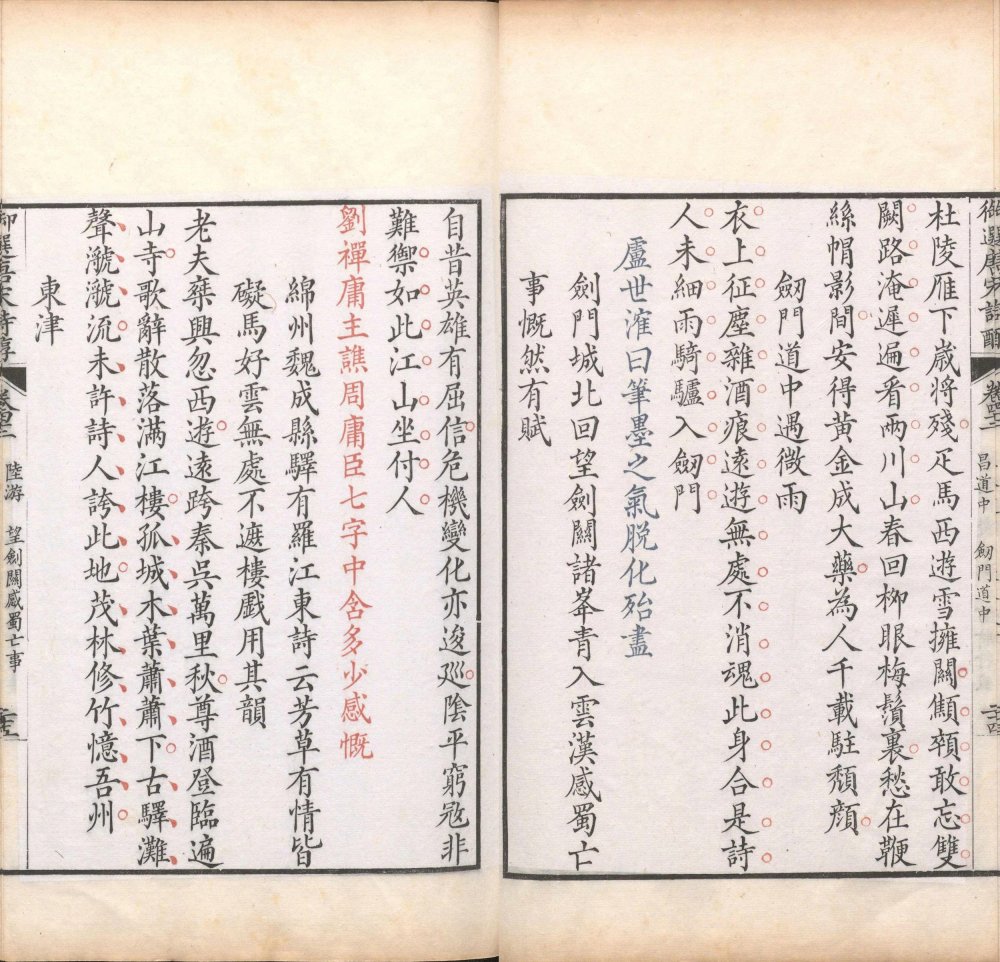 杜陵雁下歲將殘疋馬西遊雪擁關顦顇敢忘雙
闕路淹遲遍看兩川山春回柳眼梅鬚裏愁在鞭
絲帽影間安得黃金成大藥為人千載駐頹顏
劒門道中遇微雨
衣上征塵雜酒痕遠遊無處不消魂此身合是詩
人未細雨騎驢入劒門
盧世㴶曰筆墨之氣脫化殆盡
劍門城北回望劍關諸峯青入雲漢感蜀亡
事慨然有賦
昌道中 劒門道中
自昔英雄有屈信危機變化亦逡巡陰平窮寇非
難禦如此江山坐付人
劉禪庸主譙周庸臣七字中含多少感慨
綿州魏成縣驛有羅江東詩云芳草有情皆
礙馬好雲無處不遮樓戲用其韻
老夫乘興忽西遊遠跨秦吳萬里秋尊酒登臨遍
山寺歌辭散落滿江樓孤城木葉蕭蕭下古驛灘
聲㶁㶁流未許詩人誇此地茂林修竹憶吾州
東津
陸游 望劍關感蜀亡事